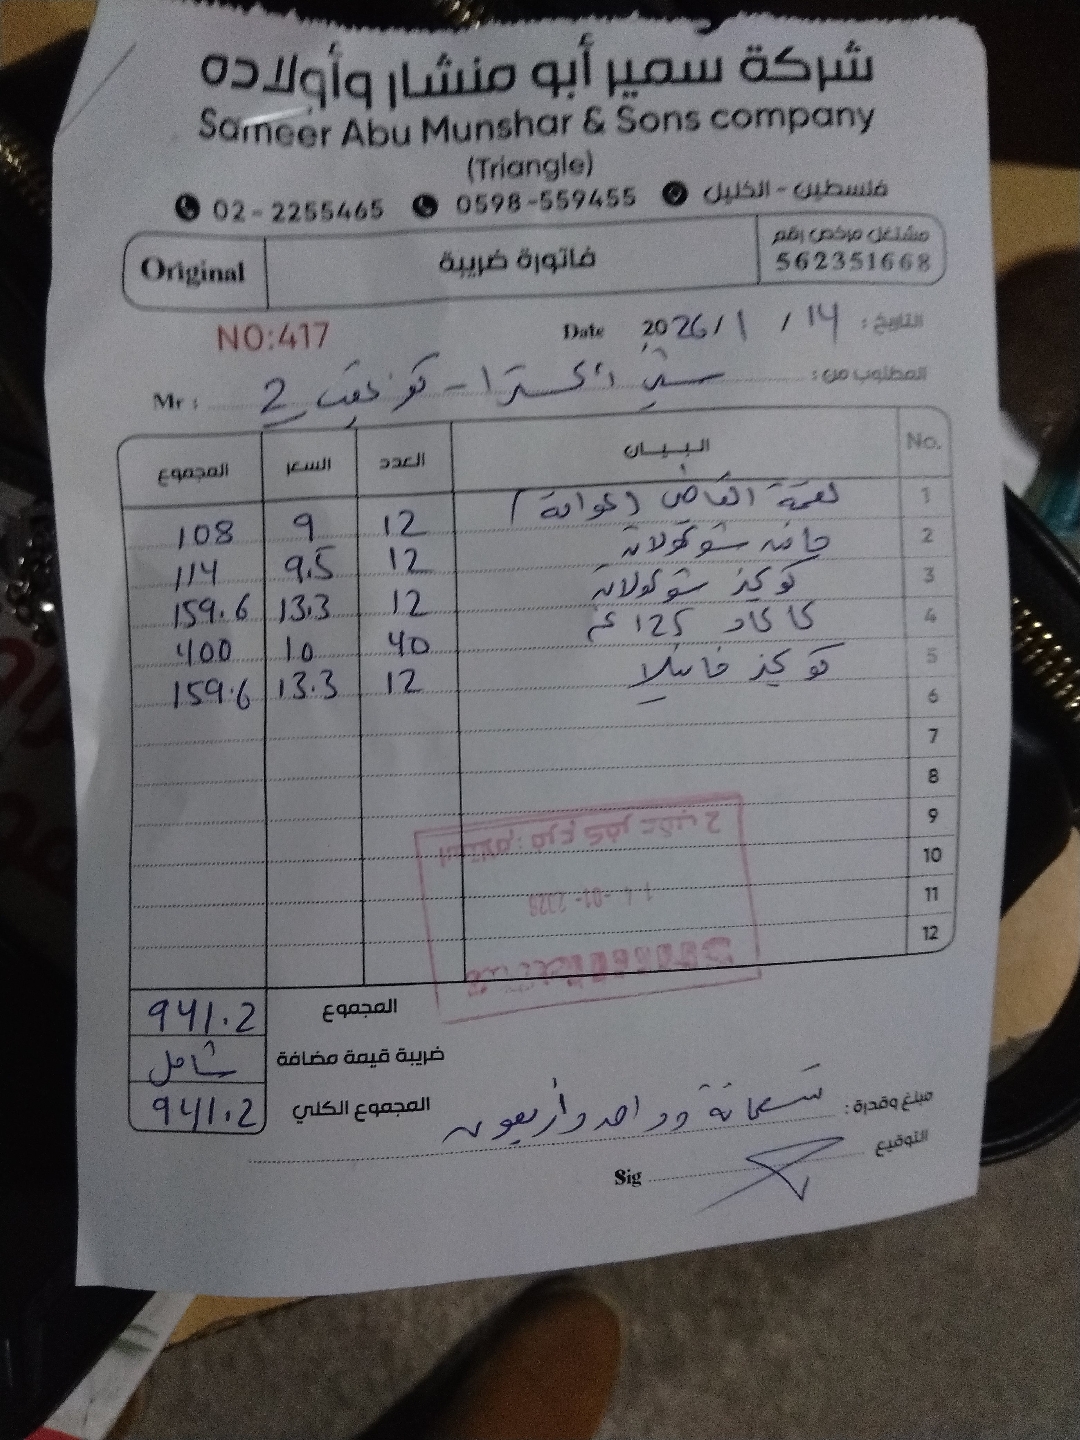 شركة سمير أبو منشار وأولاده
Sameer Abu Munshar & Sons company
(Triangle)
02-2255465 0598-559455 فلسطين - الخليل
Original فاتورة ضريبة مشتغل مرخص رقم 562351668
NO:417 Date 2026/1/14 التاريخ:
Mr: 2 المطلوب من:
No. البيـــان العدد السعر المجموع
1 لقمة القاضي 12 9 108
2 شوكولاته 12 9.5 114
3 كوكيز شوكولاته 12 13.3 159.6
4 125 غم 40 10 400
5 كوكيز فانيلا 12 13.3 159.6
6
7
8
9
10
11
12
استلام: فرع كفر عقب 2
المجموع 941.2
ضريبة قيمة مضافة شامل
المجموع الكلي 941.2
مبلغ وقدرة: تسعمائة وواحد وأربعون
التوقيع Sig